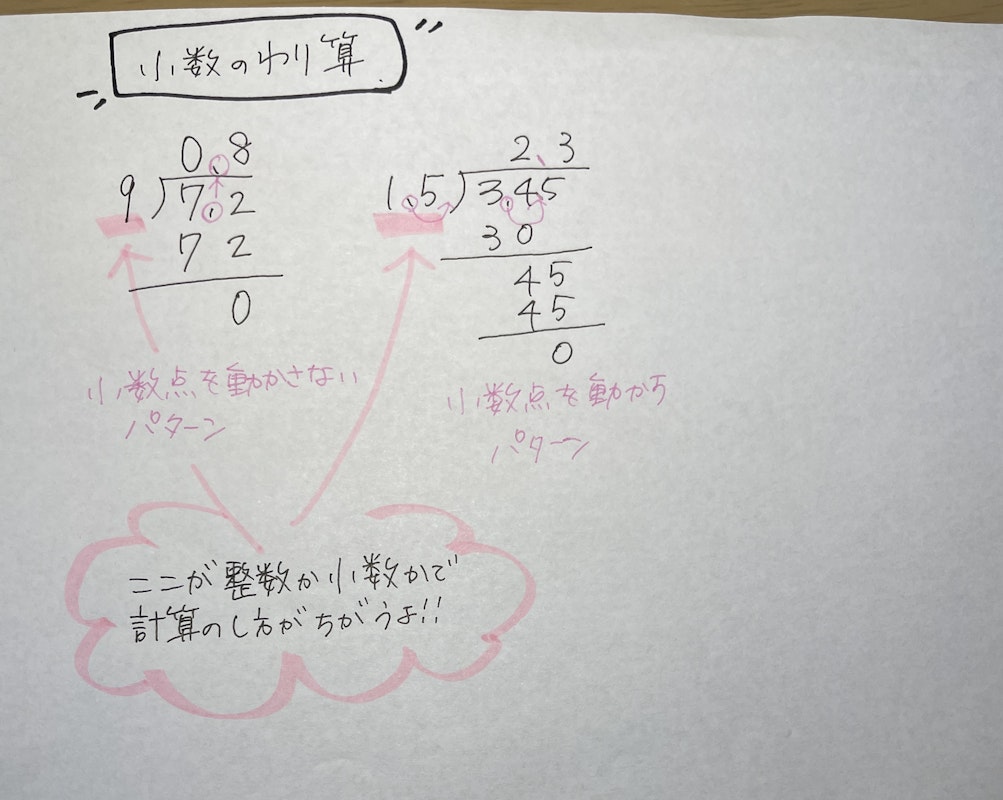 小数のわり算
0.8
9)7.2
72
0
2.3
1.5)3.45
30
45
45
0
小数点を動かさない
パターン
小数点を動かす
パターン
ここが整数か小数かで
計算のし方がちがうよ!!